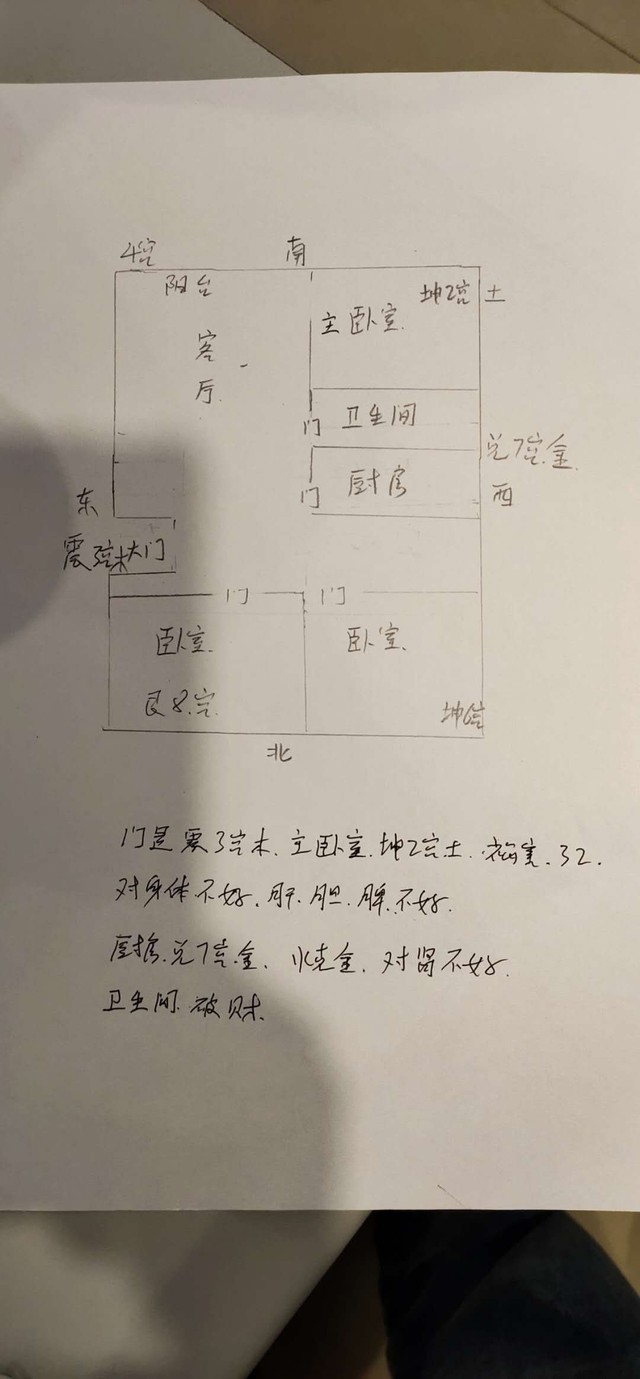 4宫 南
阳台 坤2宫 土
主卧室
客
厅
卫生间
门
兑7宫金
厨房
门
东 西
震3宫木大门
门 门
卧室 卧室
艮8宫
北
门是震3宫木.主卧室.坤2宫土. 32.
对身体不好.肝.胆.脾.不好.
厨房.兑7宫.金. 火克金.对肾不好.
卫生间.破财.